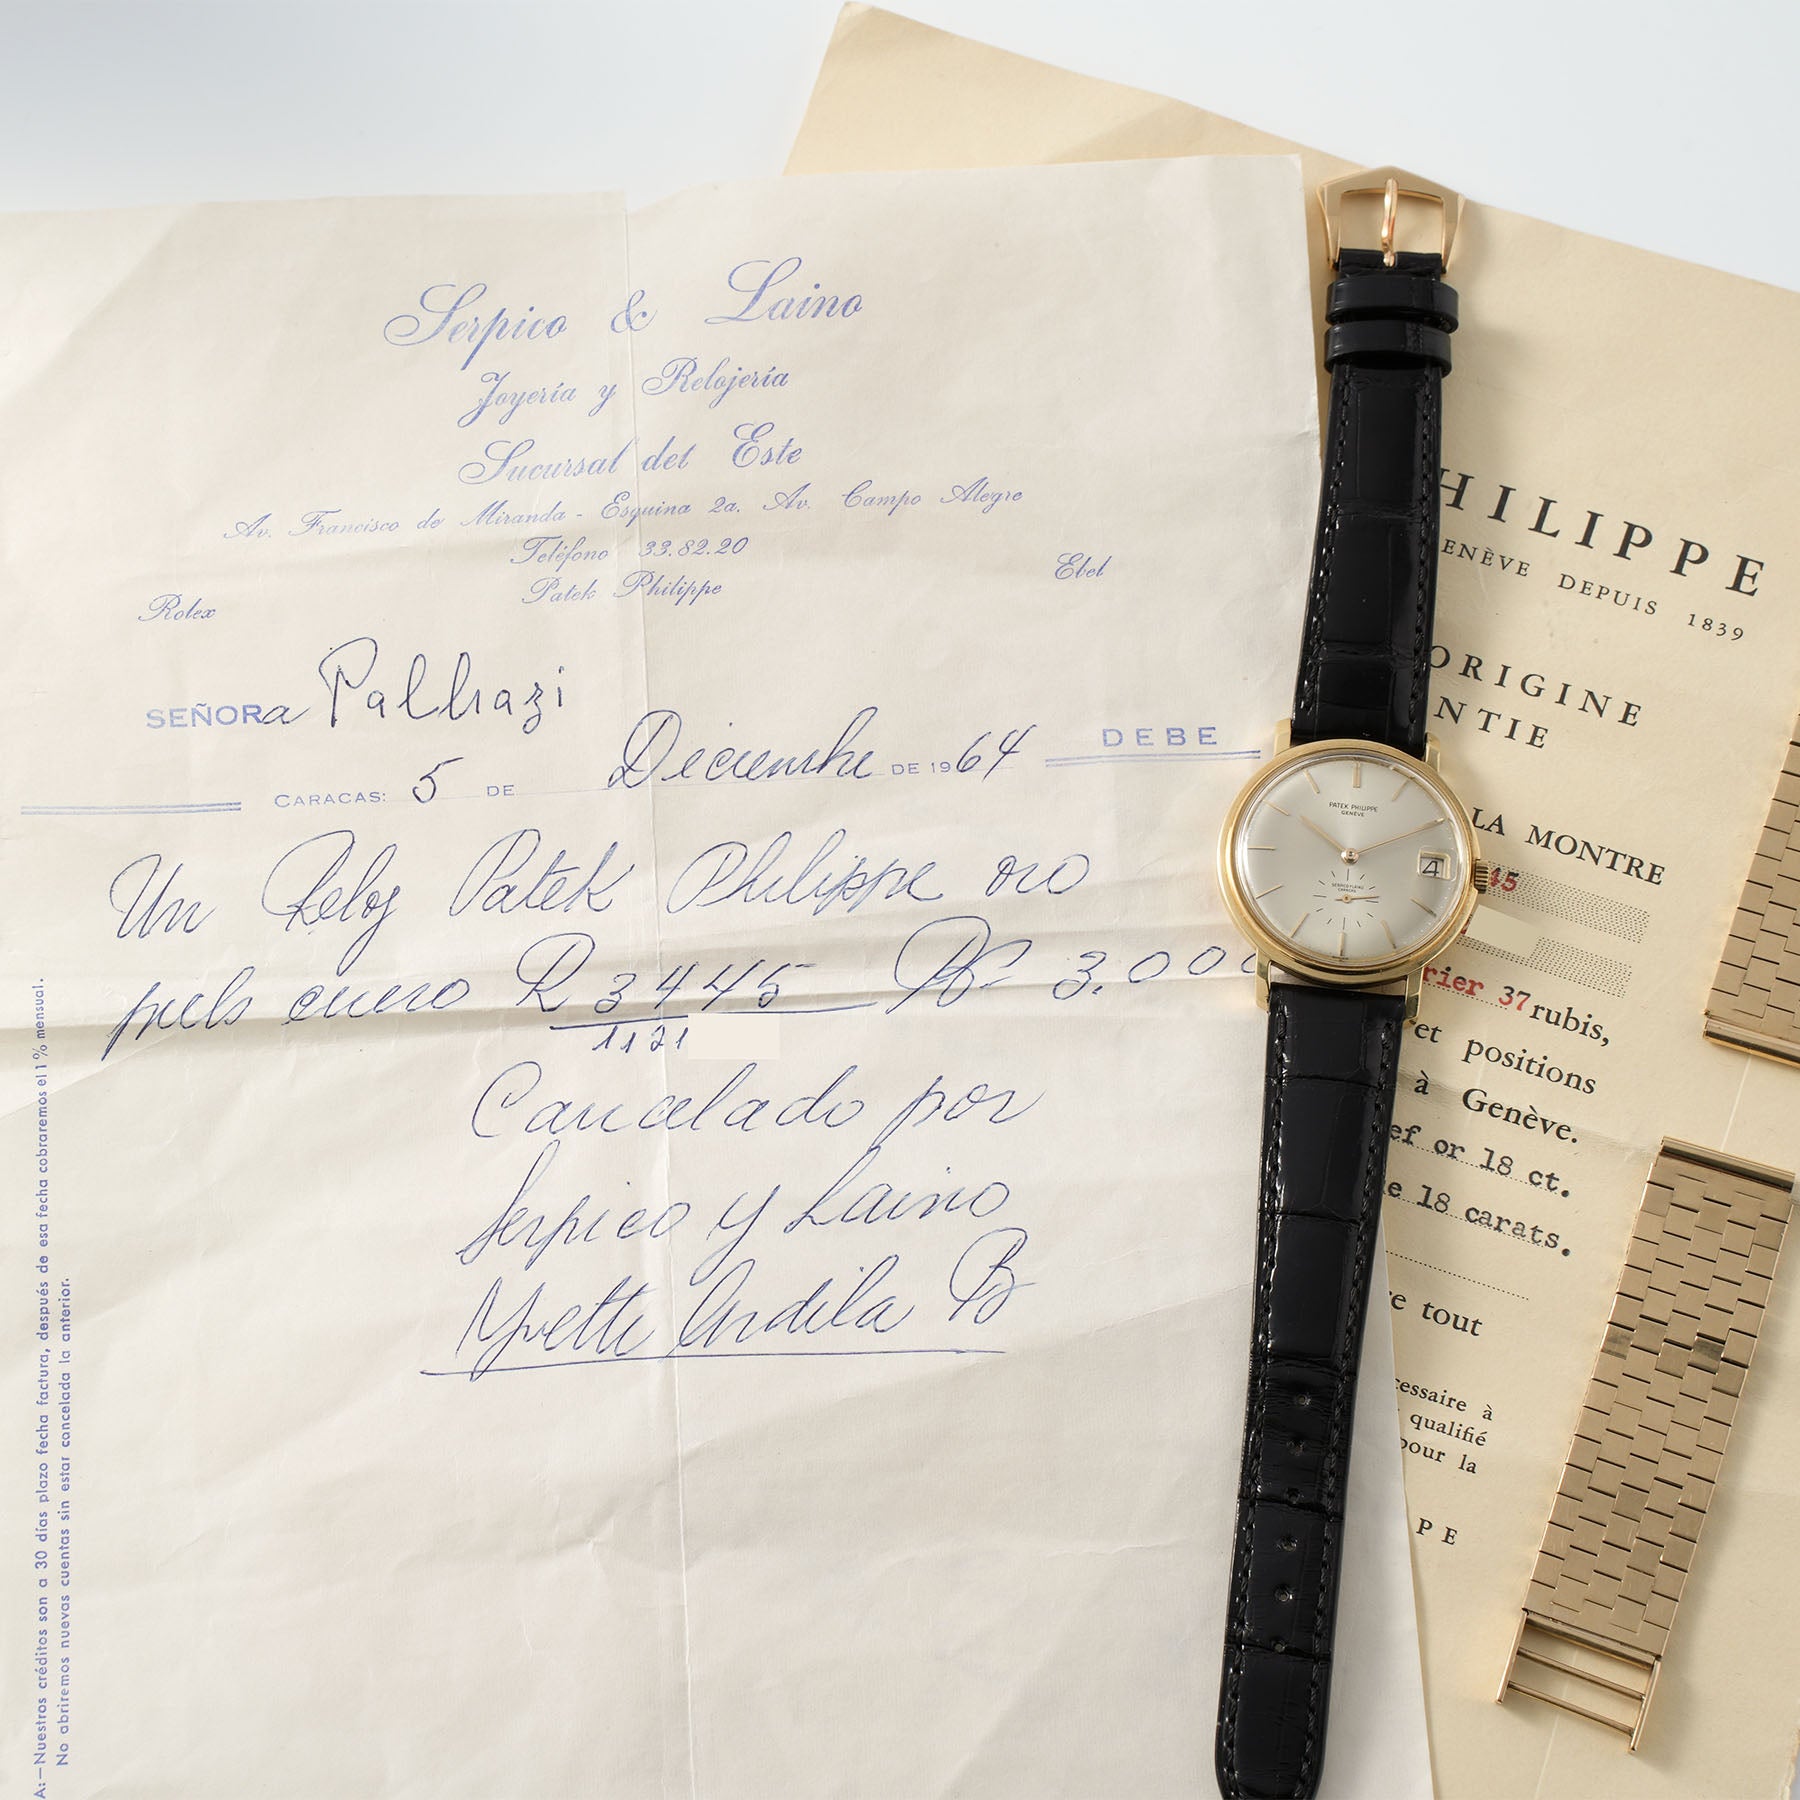 Serpico & Laino
Joyería y Relojería
Sucursal del Este
Av. Francisco de Miranda - Esquina 2a. Av. Campo Alegre
Teléfono 33.82.20
Rolex
Patek Philippe
Ebel
SEÑORa Palbrazi
CARACAS: 5 DE Diciembre DE 1964
DEBE
Un Reloj Patek Philippe oro
piel cuero R 3445 Bs 3.000
1121
Cancelado por
Serpico y Laino
Yvette Ardila B
A:—Nuestros créditos son a 30 días plazo fecha factura, después de esa fecha cobraremos el 1 % mensual.
No abriremos nuevas cuentas sin estar cancelada la anterior.
PATEK PHILIPPE
GENÈVE
4
SERPICO Y LAINO
CARACAS
HILIPPE
ENÈVE DEPUIS 1839
ORIGINE
NTIE
LA MONTRE
45
rier 37 rubis,
et positions
à Genève.
ef or 18 ct.
e 18 carats.
re tout
cessaire à
qualifié
pour la
PE